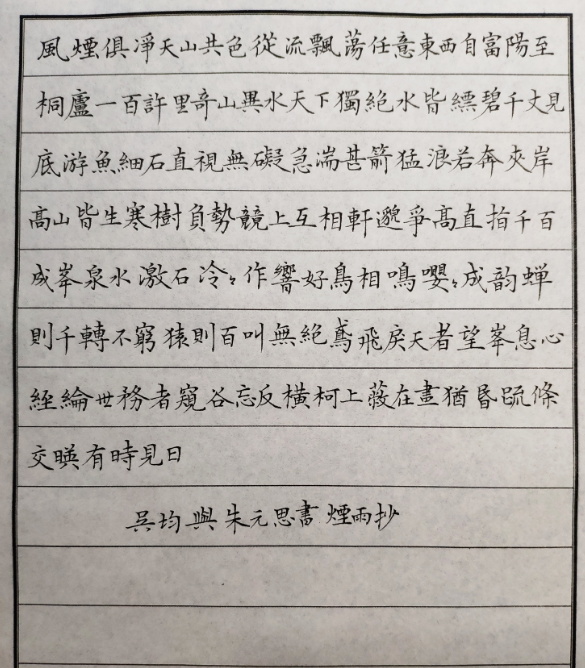 風煙俱淨天山共色從流飄蕩任意東西自富陽至
桐廬一百許里奇山異水天下獨絕水皆縹碧千丈見
底游魚細石直視無礙急湍甚箭猛浪若奔夾岸
高山皆生寒樹負勢競上互相軒邈爭高直指千百
成峯泉水激石冷〻作響好鳥相鳴嚶〻成韵蝉
則千轉不窮猿則百叫無絕鳶飛戾天者望峯息心
經綸世務者窺谷忘反橫柯上蔽在晝猶昏疏條
交暎有時見日
吳均與朱元思書 煙雨抄